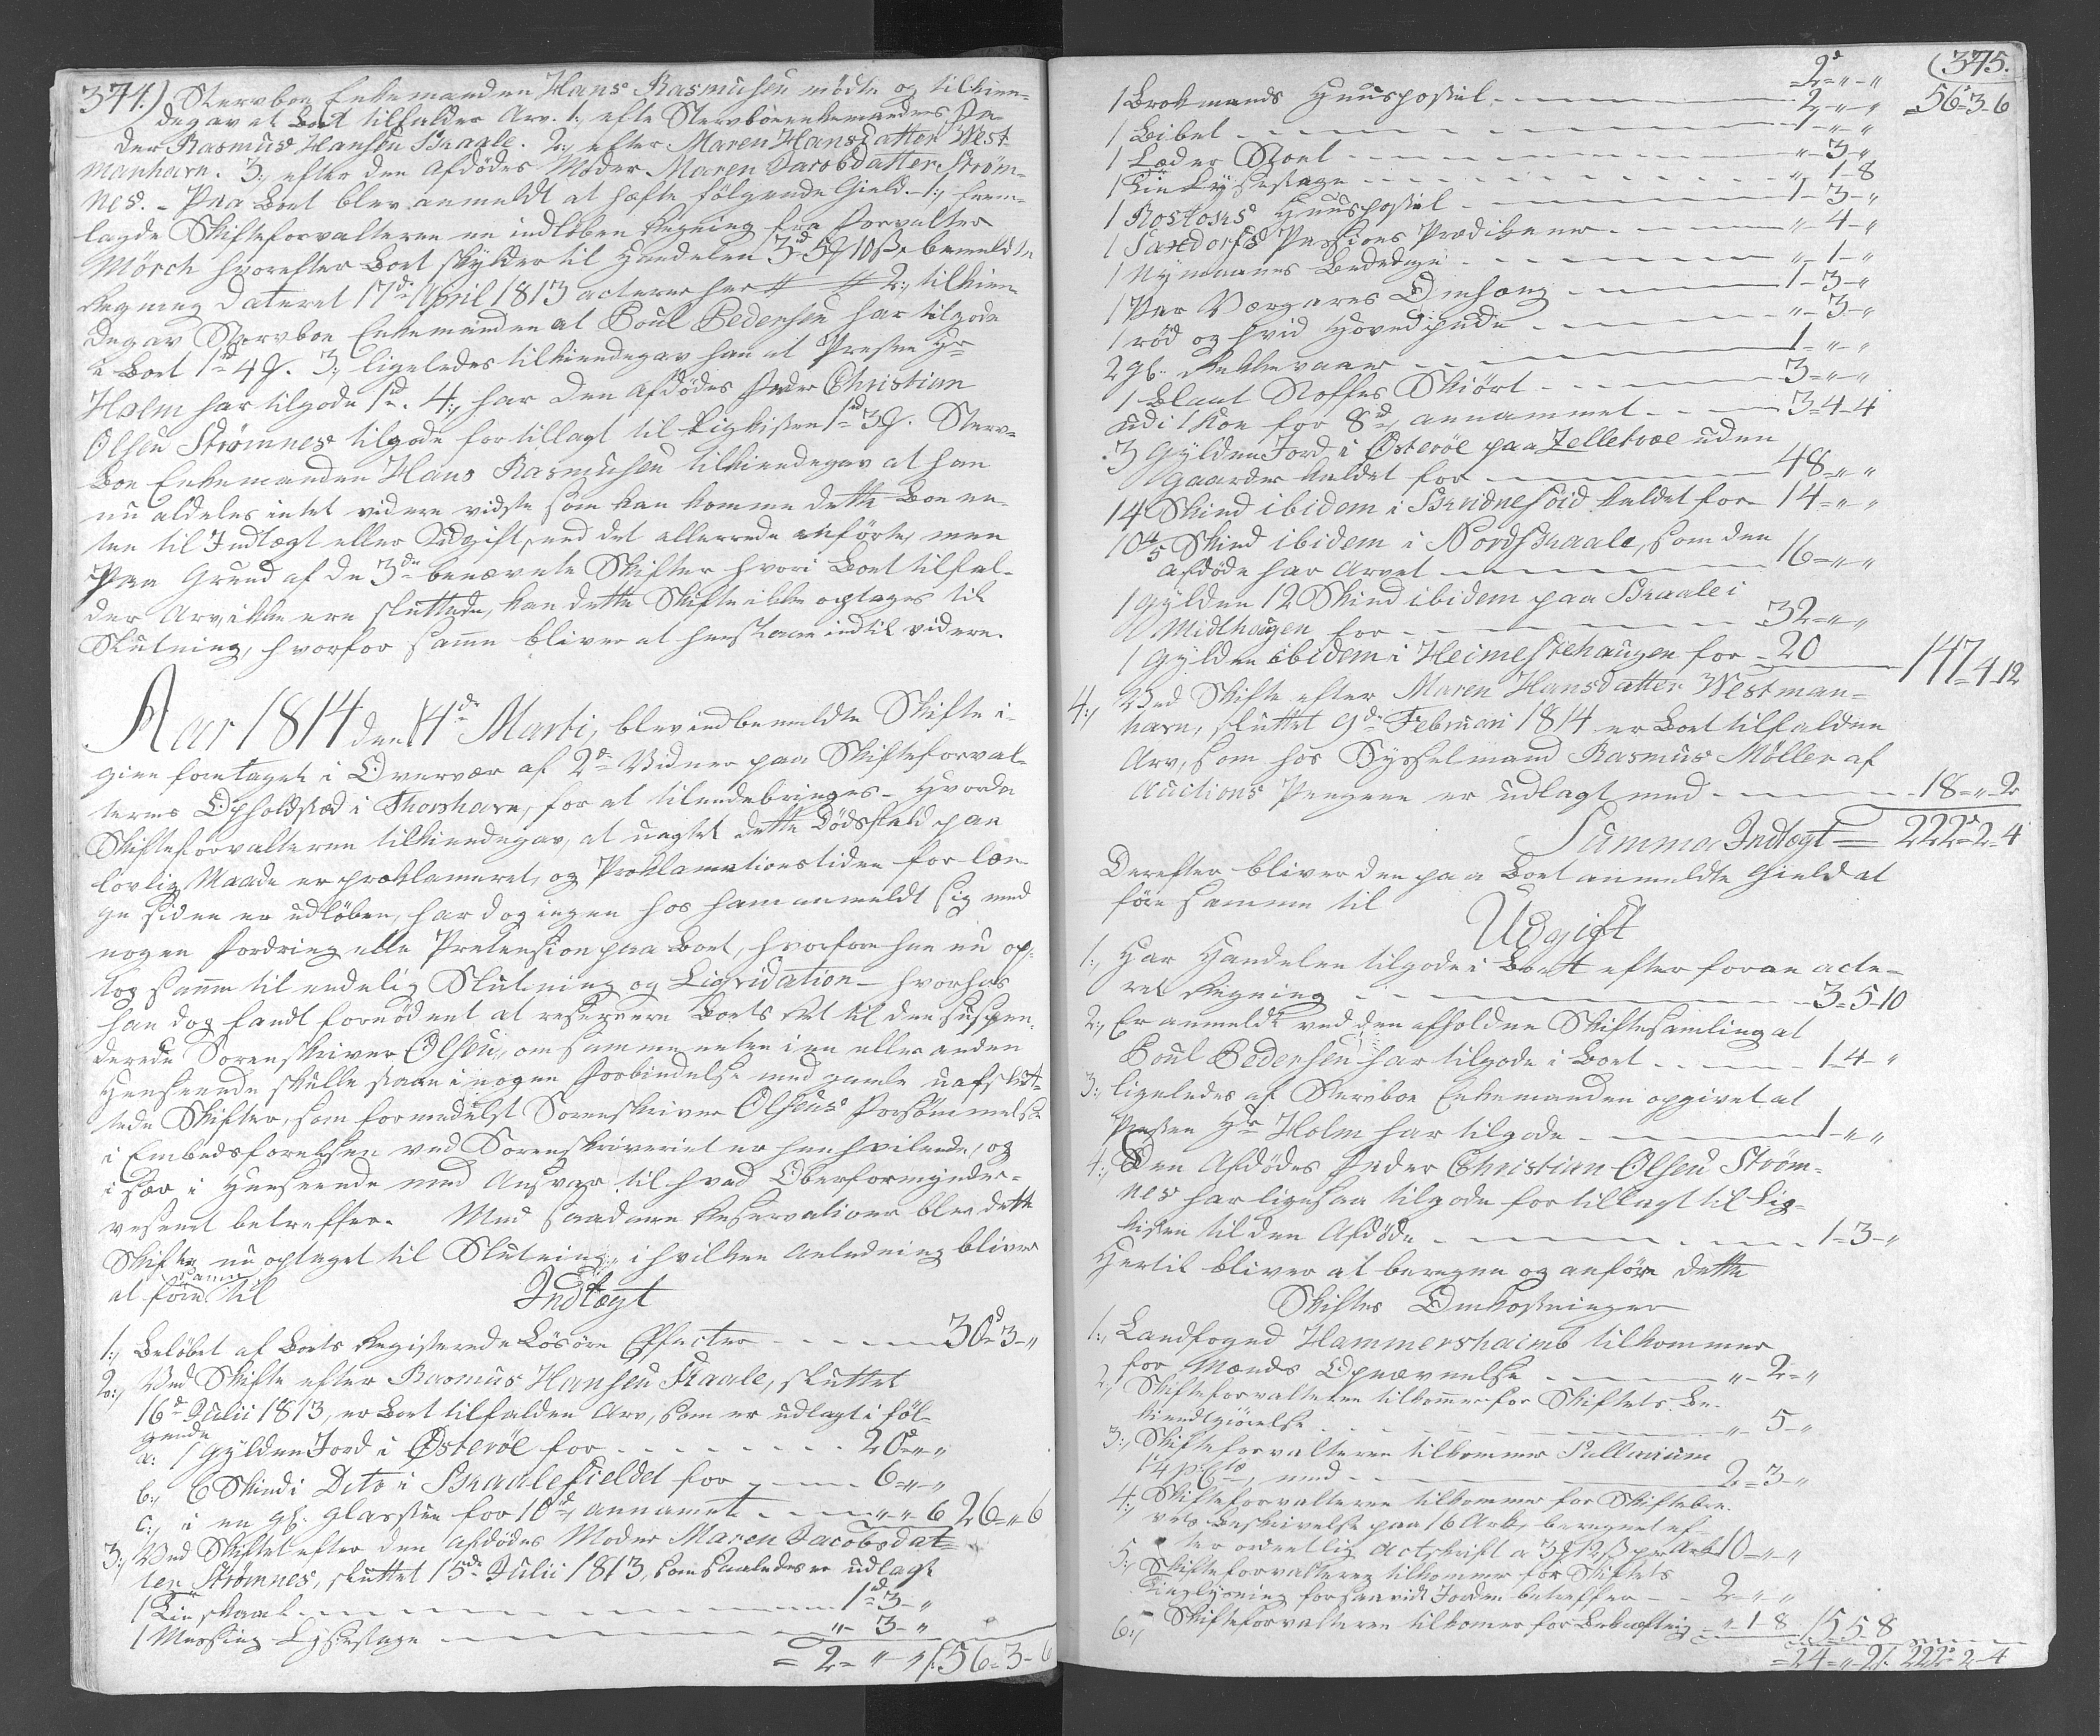 374.) Stervboe Enkemanden Hans Rasmusen mödte og tilkien-
degav at Boet tilfalder Arv. 1:, efter Stervboeenkemandens Fa-
der Rasmus Hansen Skaale. 2:, efter Maren Hansdatter West-
manhavn. 3:, efter den Afdödes Moder Maren Jacobsdatter Ström-
nes. - Paa Boet blev anmeldt at hæfte fölgende Gield. 1:, frem-
lagde Skifteforvalteren en indloben Regning fra Forvalter
Mörch hvorefter Boet skylder til Handelen 3rd 5 10 s. bemeldte
Regning dateret 17de April 1813 acteres her # # 2:, tilkien-
degav Stervboe Enkemanden at Poul Pedersen har tilgode
i Boet 1rd 4. 3:, ligeledes tilkiendegav han at Presten Hr
Holm har tilgode 1rd. 4:, har den Afdödes Fader Christian
Olsen Strömnes tilgode for tillagt til Ligkisten 1rd 3. Sterv-
boe Enkemanden Hans Rasmusen tilkiendegav at han
nu aldeles intet videre vidste som kan komme dette Boe en-
ten til Indtægt eller Udgift, end det allerede anförte, men
paa Grund af de 3de benævnte Skifter hvori Boet tilfal-
der Arv ikke ere sluttede, kan dette Skifte ikke optages til
Slutning, hvorfor samme bliver at henstaae indtil videre.
Aar 1814 den 14de Marti, blev indbemeldte Skifte i-
gien foretaget i Overvær af 2de Vidner paa Skifteforval-
terens Opholdstæd i Thorshavn, for at tilendebringes - Hvorda
Skifteforvalteren tilkiendegav, at uagtet dette Dödsfald paa
lovlig Maade er proklameret, og Proklamationstiden for læn-
ge siden er udlöben, har dog ingen hos ham anmeldt sig med
nogen Fordring elle Pretension paa Boet, hvorfore han nu op-
tog samme til endelig Slutning og Liqvidation - hvorhos
han dog fandt fornödent at reservere Boets Ret til den suspen-
derede Sorenskriver Olsen, om samme enten i en eller anden
Henseende skulle staae i nogen Forbindelse med gamle uafslut-
tede Skifter, som formedelst Sorenskriver Olsens Forsömmelse
i Embedsförelsen ved Sorenskriveriet er henhvilende, og
i sær i Henseende med Ansvar til hvad Oberformynder-
vesenet betreffer. Med saadanne Reservationer blev dette
Skifte nu optaget til Slutning, i hvilken Anledning bliver
samme
at före til
Indtægt
1:, Belöbet af Boets Registerede Lösöre Effecter 30d 3 "
2:, Ved Skifte efter Rasmus Hansen Skaale, sluttet
16d Julii 1813, er Boet tilfalden Arv, som er udlagt i föl-
gende
a: 1 Gylden Jord i Österöe for 20 " "
b:, 6 Skind i Dito i Skaalefieldet for 6 " "
c:, i en gl. Glassteen for 10d, annamet " " 6 26 " 6
3:, Ved Skiftet efter den Afdödes Moder Maren Jacobsdat-
ter Strömnes, sluttet 15de Julii 1813, som saaledes er udlagt
1 Tin skaal 1d 3 "
1 Messing Lysestage " 3 "
= 2 = " " 56 = 3 - 6
(375.
2d = " - " 56 - 3 - 6
1 Brokmands Huuspostil 2 - " "
1 Bibel 1 - " - "
1 Læder Stoel " 3 - "
1 Tin Lysestage " 1 - 8
1 Rostoks Huuspostil 1 - 3 - "
1 Passions Prædikener " 4 - "
1 Nymanns Bededage " 1 - "
1 Par Omhæng 1 - 3 - "
1 röd og hvid Hovedpude " 3 - "
2 gl. 1 - " - "
1 Blaat Stoffes Skiört 3 = " - "
udi 1 Koe for 8d, annammet 3 = 4 - 4
3 Gylden Jord i Österöe paa Zelletræe uden
Gaarder kaldet for 48 - " "
14 Skind ibidem i kaldet for 14 - " - "
10 4/5 Skind ibidem i Nordskaale, som den
afdöde har Arvet 16 - " "
1 Gylden 12 Skind ibidem paa Skaale i
Midlhaugen for 32 - " "
1 Gylden ibidem i Heimestehaugen for 20 147 4 12
4:, Ved Skifte efter Maren Hansdatter Westman-
havn, sluttet 9de Februari 1814 er Boet tilfalden
Arv, som hos Sysselmand Rasmus Möller af
Auctions Pengene er udlagt med 18 - " 2
Summa Indtægt = 222 = 2 - 4
Derefter bliver den paa Boet anmeldte Gield at
före samme til
Udgift
1:, Har Handelen tilgode i Boet efter foran acte-
ret Regning 3 = 5 - 10
2:, Er anmeldt ved den afholdne Skiftesamling at
Poul Pedersen har tilgode i Boet 1 - 4 - "
3:, ligeledes af Stervboe Enkemanden opgivet at
Presten Hr Holm har tilgode 1 - " "
4:, Den Afdödes Fader Christian Olsen Ström-
nes har ligesaa tilgode for tillagt til Lig-
kisten til den Afdöde 1 - 3 - "
Hertil bliver at beregne og anföre dette
Skiftes Omkostninger
1:, Landfoged Hammershaimb tilkommer
for Mænds Opnævnelse " 2 = "
2:, Skifteforvalteren tilkommer for Skiftets Be-
kiendtgiörelse " 5 - "
3:, Skifteforvalteren tilkommer Sallarium
1 1/4 pCto, med 2 = 3 - "
4:, Skifteforvalteren tilkommer for Skiftebre-
vets Beskrivelse paa 16 Ark, beregnet ef-
ter ordentlig Actskrift a 3 12 s pr Ark 10 - " - "
5:, Skifteforvalteren tilkommer for Skiftets
Tinglysning forsaavidt Jorden betreffer 2 - " - "
6:, Skifteforvalteren tilkommer for Bekræftning " 1 - 8 15 5 - 8
= 24 = " - 2 222 = 2 - 4